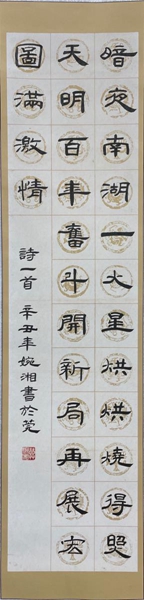 暗夜南湖一火星烘烘燒得熒
天明百年奮斗開新局再展宏
圖滿激情
詩一首 辛丑年婉湘書於莞